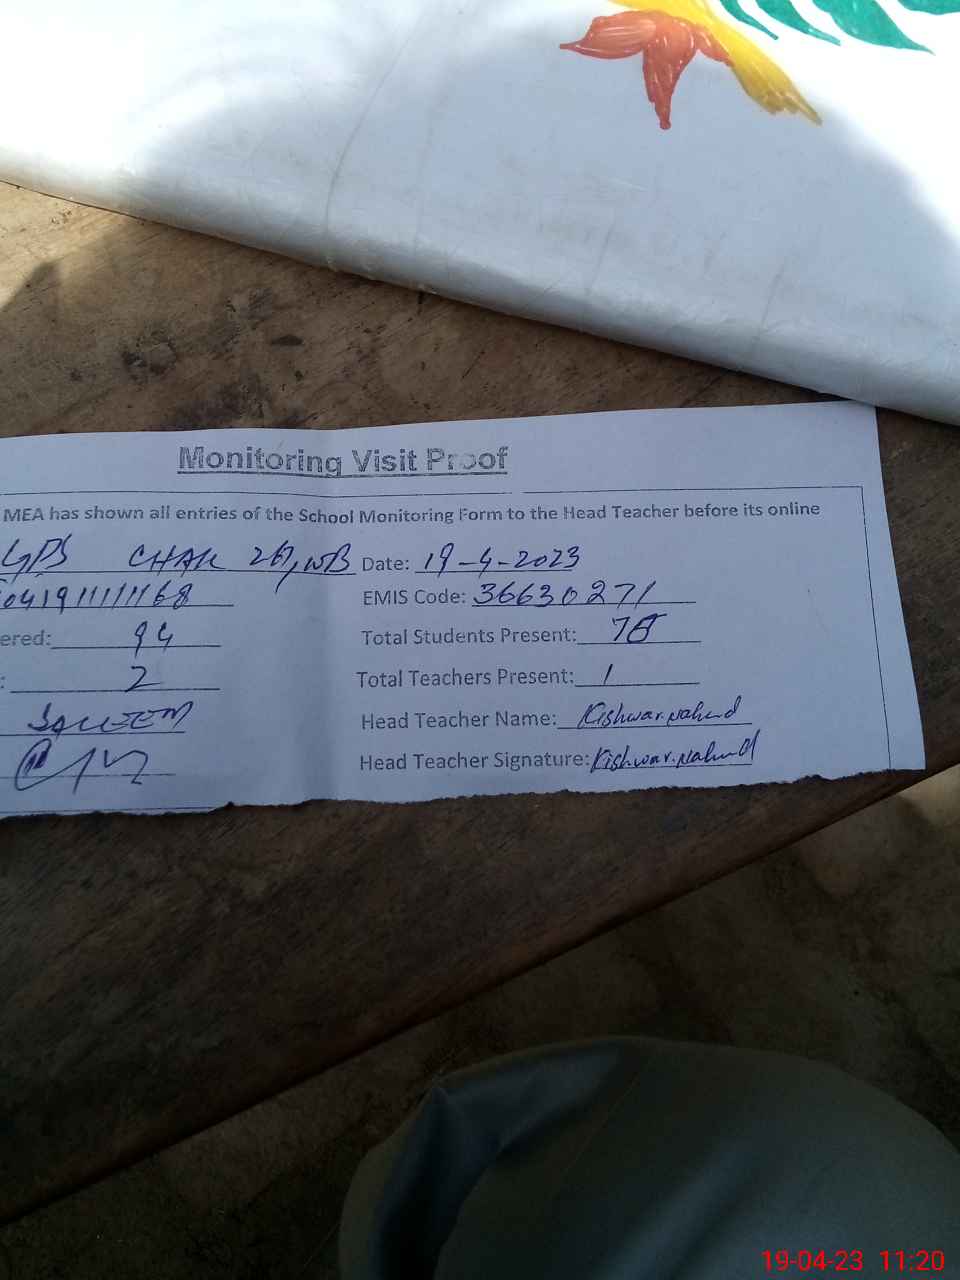 Monitoring Visit Proof
MEA has shown all entries of the School Monitoring Form to the Head Teacher before its online
GPS CHAK 267,WB Date: 19-4-2023
0419111111168 EMIS Code: 36630271
ered: 94 Total Students Present: 78
: 2 Total Teachers Present: 1
SALEEM Head Teacher Name: Kishwar.nahed
Head Teacher Signature: Kishwar.nahed
19-04-23 11:20